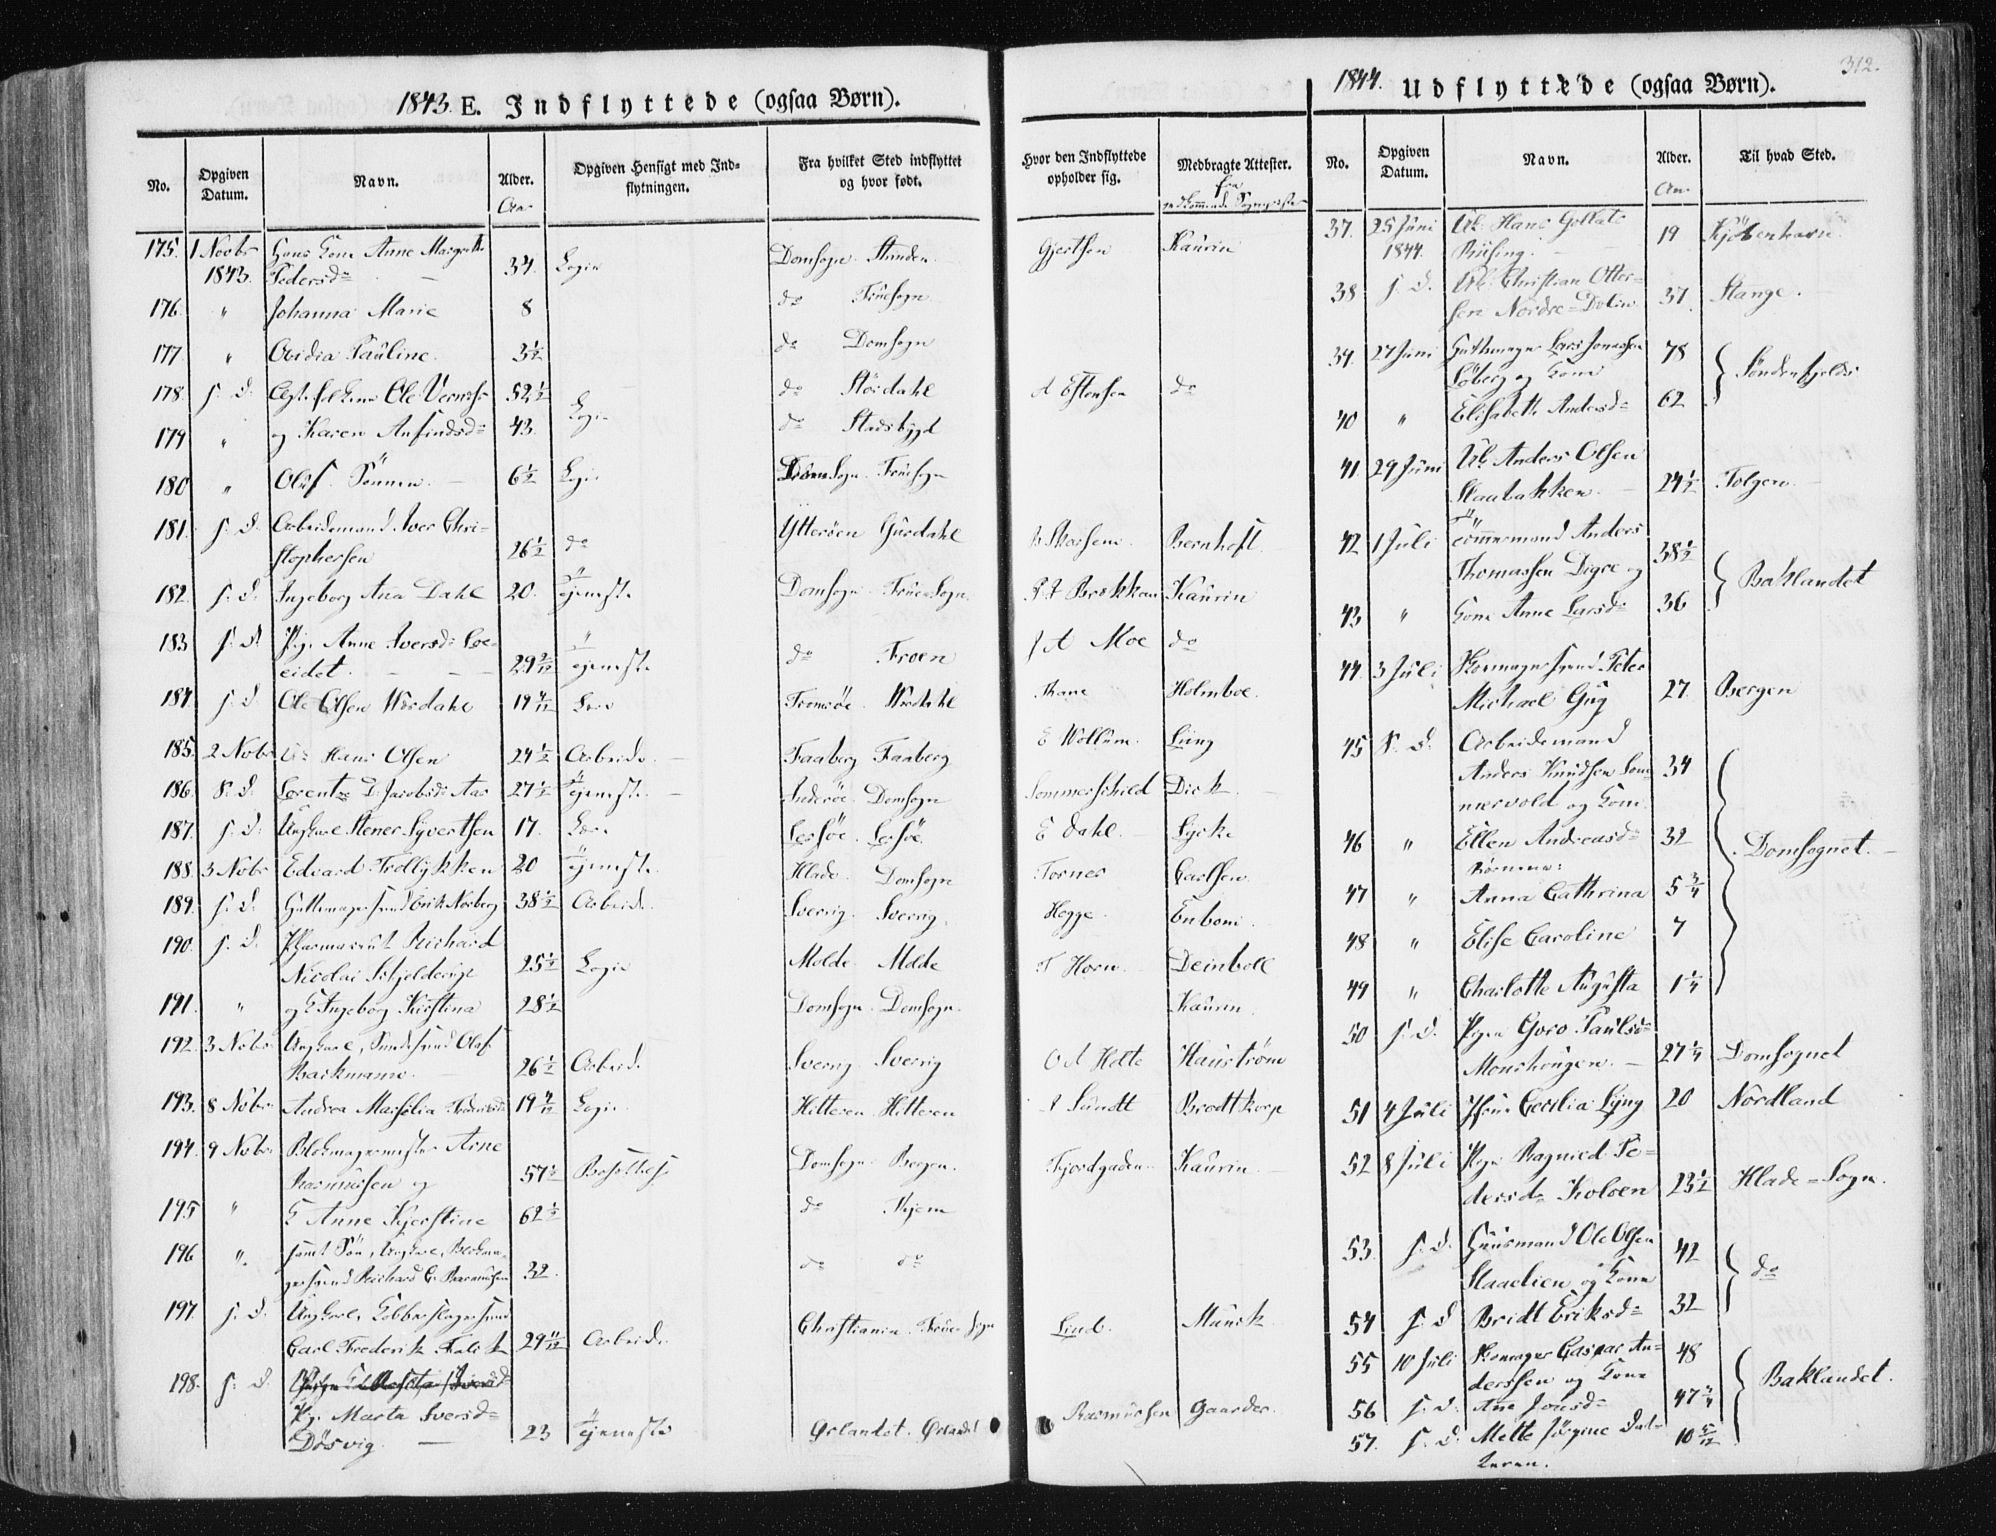 312.
1843. E. Indflyttede (ogsaa Børn).
No. Opgiven Datum. Navn. Alder. Opgiven Hensigt med Indflytningen. Fra hvilket Sted indflyttet og hvor født. Hvor den Indflyttede opholder sig. Medbragte Attester.
Aar fra
175. 1 Novbr 1843. Hans Kone Anne Margrethe Pedersd= 34. Logie Domsogn Gjertsen Kaurin
176. " Johanna Marie 8 do Fruesogn
177 " Ovidia Pauline. 3½ do Domsogn
178. s. d. Ole 52½ do Størdahl A Estensen do
179 " og Karen Anfindsd= 43. Logie do Stadsbygd
180 " Oluf. Sønnen. 6½ Logie Domsogn Fruesogn
181. s. d. Arbeidsmand Iver Christophersen 26½ do Ytterøen Bernhoft
182. s. d. Ingeborg Ana Dahl 20. Tjeneste Domsogn Fruesogn. Kaurin
183 s. d. Pige Anne Iversd= 29 Tjeneste do Froen Moe do
184 s. d. Ole Olsen Werdahl 19 Lære Tromsøe. Werdahl Thane Holmboe.
185. 2 Nvbr Hans Olsen 24½ Arbeide. Faaberg Faaberg E Wollum. Ling
186. s. d. Lorentze D. Jacobsd= Aas 27½ Tjeneste. Inderøe. Domsogn Sommerschield Dirk.
187. s. d. Ungkarl Stener Syvertsen 17. Lære Lessøe. Lessøe. E Dahl. Lycke
188. 3 Nvbr Edvard Trollykken 20 Tjeneste. Hlade. Domsogn Torner Carlsen
189. s. d. Erik Norberg 38½ Arbeide Sverrig. Sverrig. Hegge. Enbom.
190. s. d. Pharmaceut Richard Nicolai Schjelderup 25½ Logie Molde. Molde T Horn. Deinboll
191. " og Ingeborg Kirstina 28½ Domsogn. Domsogn. Kaurin.
192. 3 Nvbr. Ungkarl, Olaf Backmann. 26½ Arbeid. Sverrig Sverrig O A Holte Haustrøm
193. 8 Nvbr. Andrea Marselia 19 Logie Hitteren Hitteren A Lundt Brodtkorp
194. 9 Nvbr. Blokmagermester Arne Rasmussen og 57½ Bosættelse Domsogn. Bergen. Fjordgaden. Kaurin.
195 " K Anne Kjerstine 62½ do Hjem
196 ". samt Søn, Ungkarl, Blokmagersvend Richard C. Rasmussen 32. do do
197. s. d. Ungkarl, Kobberslagersvend Carl Frederik Falck 29 11/12 Arbeide Christiania. Frue Sogn Lind. Munck
198. s. d. Pige Marta Iversd= Døsvig. 23 Tjeneste Ørlandet. Ørlandet Rasmussen Gaarder.
1844. Udflyttede (ogsaa Børn).
No. Opgiven Datum. Navn. Alder. Til hvad Sted.
Aar
37. 25 Juni 1844. Uk. Hans Rüsing. 19 Kjøbenhavn.
38 s. d. Uk. Christian Ottersen Nordre- 37. Stange.
39. 27 Juni Lars Løberg og Kone 78 Søndenfjelds
40 " Elisabeth Andersd= 62
41 29 Juni Uk. Anders Olsen 24½ Tolgen.
42 1 Juli Tömmermand Anders Thomassen Digre og 38½ Baklandet
43 " Kone Anne Larsd= 36
44. 3 Juli Peter Michael Gug 27. Bergen
45 s. d. Arbeidsmand Anders Knudsen Sommervold og Kone 34 Domsognet.
46 " Ellen Andreasd= 32
Børnene:
47 " Anna Cathrina 5¾
48 " Elise Caroline 7
49 " Charlotte Augusta 1¼
50 s. d. Pigen Goro Paulsd= Monshaugen. 27¼ Domsognet
51 4 Juli Jfru Cecilia Lÿng 20 Nordland
52 8 Juli Pigen Ragnied Pedersd= Kolsen 23½ Hlade=Sogn.
53. s. d. Huusmand Ole Olsen Staaelien og Kone 42 do
54 s. d Bridt Eriksd= 32
55 10 Juli Caspar Anderssen og Kone 48 Baklandet.
56 s. d. Ane Jonsd= 47¾
57. s. d. Mette Jørgine Datteren. 10